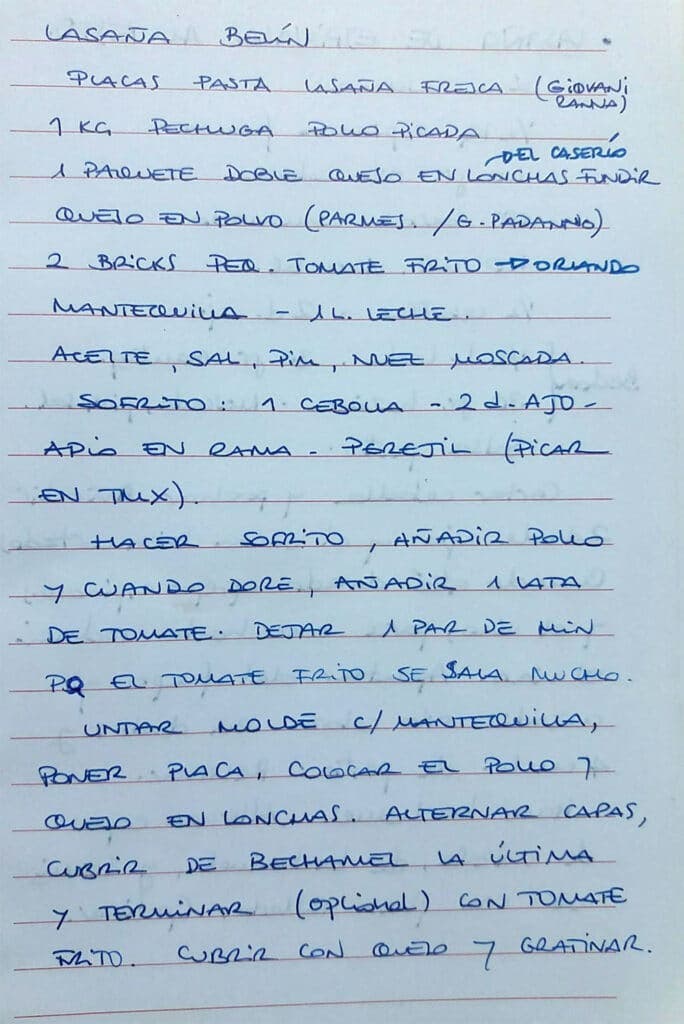 LASAÑA BELÍN
PLACAS PASTA LASAÑA FRESCA (GIOVANI
RANNA)
1 KG PECHUGA POLLO PICADA
DEL CASERÍO
1 PAQUETE DOBLE QUESO EN LONCHAS FUNDIR
QUESO EN POLVO (PARMES. /G. PADANNO)
2 BRICKS PEQ. TOMATE FRITO → ORLANDO
MANTEQUILLA - 1 L. LECHE.
ACEITE, SAL, PIM, NUEZ MOSCADA.
SOFRITO: 1 CEBOLLA - 2 d. AJO -
APIO EN RAMA - PEREJIL (PICAR
EN TMX).
HACER SOFRITO, AÑADIR POLLO
Y CUANDO DORE, AÑADIR 1 LATA
DE TOMATE. DEJAR 1 PAR DE MIN
PQ EL TOMATE FRITO SE SALA MUCHO.
UNTAR MOLDE C/MANTEQUILLA,
PONER PLACA, COLOCAR EL POLLO Y
QUESO EN LONCHAS. ALTERNAR CAPAS,
CUBRIR DE BECHAMEL LA ÚLTIMA
Y TERMINAR (opcional) CON TOMATE
FRITO. CUBRIR CON QUESO Y GRATINAR.